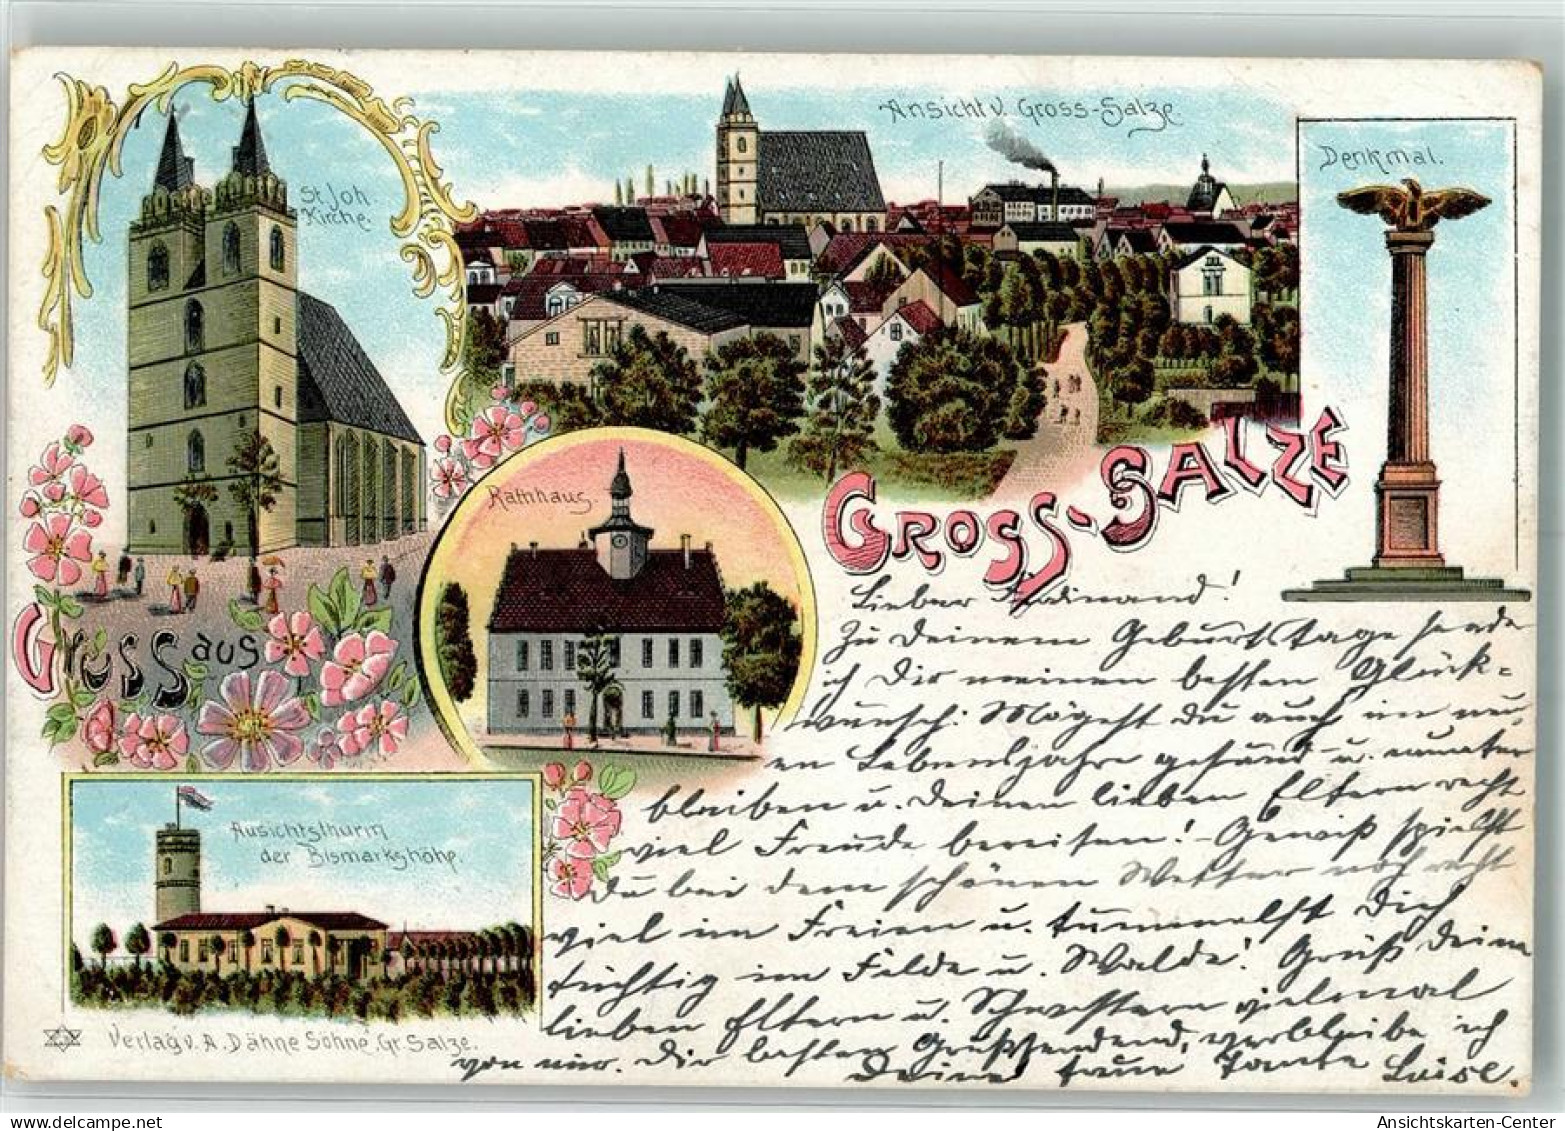 St. Joh.
Kirche.
Ansicht v. Gross-Salze
Denkmal.
Rathhaus.
GROSS-SALZE
Gruss aus
Ausichtsthurm
der Bismarkshöhe.
Verlag v. A. Dähne Söhne, Gr. Salze.
Lieber Ferdinand!
Zu Deinem Geburtstage sende
ich Dir meinen besten Glück-
wunsch. Mögest Du auch im neu-
en Lebensjahre gesund u. munter
bleiben u. Deinen lieben Eltern recht
viel Freude bereiten! Gewiß spielst
Du bei dem schönen Wetter noch recht
viel im Freien u. tummelst Dich
tüchtig im Felde u. Walde! Grüß Deine
lieben Eltern u. Schwestern vielmal
von mir. Dir besten Gruß sendend, verbleibe ich
Deine treue Tante Luise.
AnsichtsKarten-Center